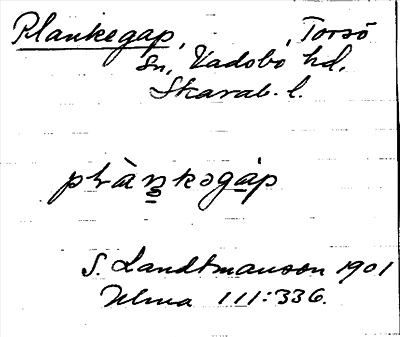 Plankegap, Torsö
sn, Vadsbo hd,
Skarab. l.
plàŋkəgáp
S. Landtmanson 1901
Ulma 111:336.